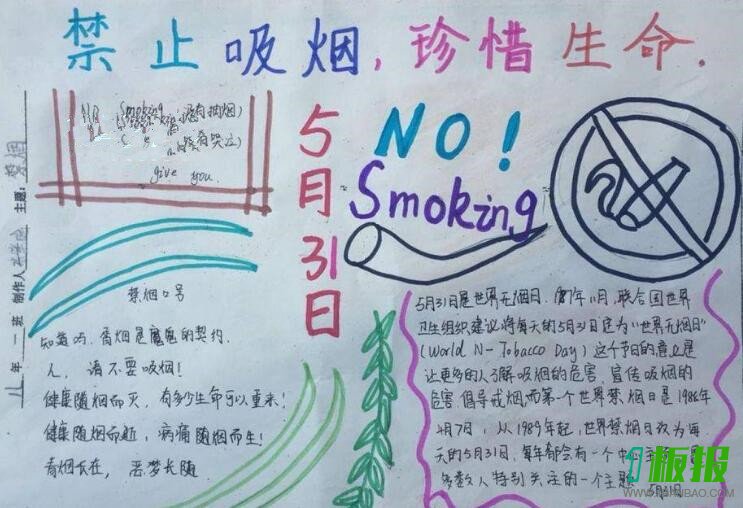 禁止吸烟，珍惜生命.
No Smoking (没有抽烟)
没有哭泣)
give you.
5月31日
NO!
Smoking
主题：禁烟
制作人
八年一班
禁烟口号
知道吗，香烟是魔鬼的契约.
人，请不要吸烟!
健康随烟而灭，有多少生命可以重来!
健康随烟而逝，病痛随烟而生!
青烟长在，恶梦长随.
5月31日是世界无烟日.1987年11月,联合国世界
卫生组织建议将每天的5月31日定为"世界无烟日"
(World N- Tobacco Day) 这个节日的意义是
让更多的人了解吸烟的危害,宣传吸烟的
危害.倡导戒烟.而第一个世界禁烟日是1988年
4月7日，从1989年起,世界禁烟日改为每
天的5月31日.每年都会有一个中
多数人特别关注的一个主题.
5月31日
板报
WWW.BANBAO.COM